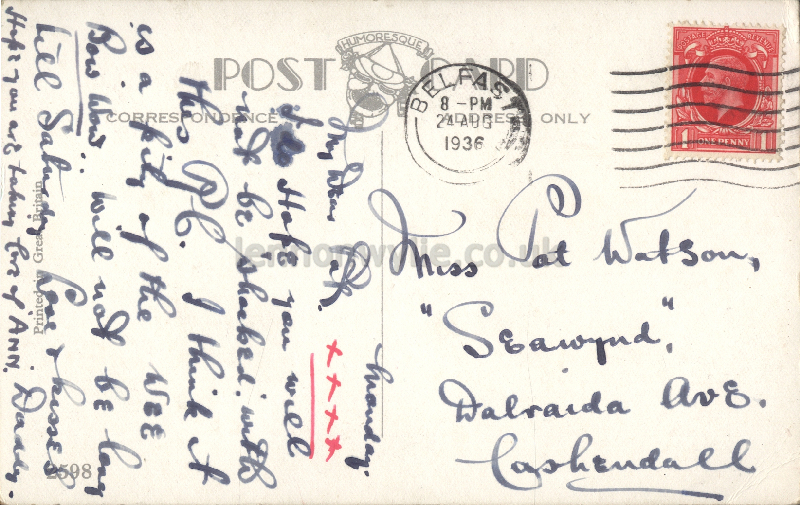 HUMORESQUE
POST CARD
CORRESPONDENCE
ADDRESS ONLY
BELFAST
8 - PM
24 AUG
1936
POSTAGE REVENUE
1 ONE PENNY
Monday.
My Dear Pat.
I Hope you will
not be shocked with
this P.C. I think it
is a pity of the WEE
Bow Wow. will not be long
till Saturday love & kisses
Daddy.
xxxx
Hope you are taking care of ANN.
Miss Pat Watson,
"Seawynd",
Dalraida Ave.
Cushendall
Printed in Great Britain
2598
lennonwylie.co.uk